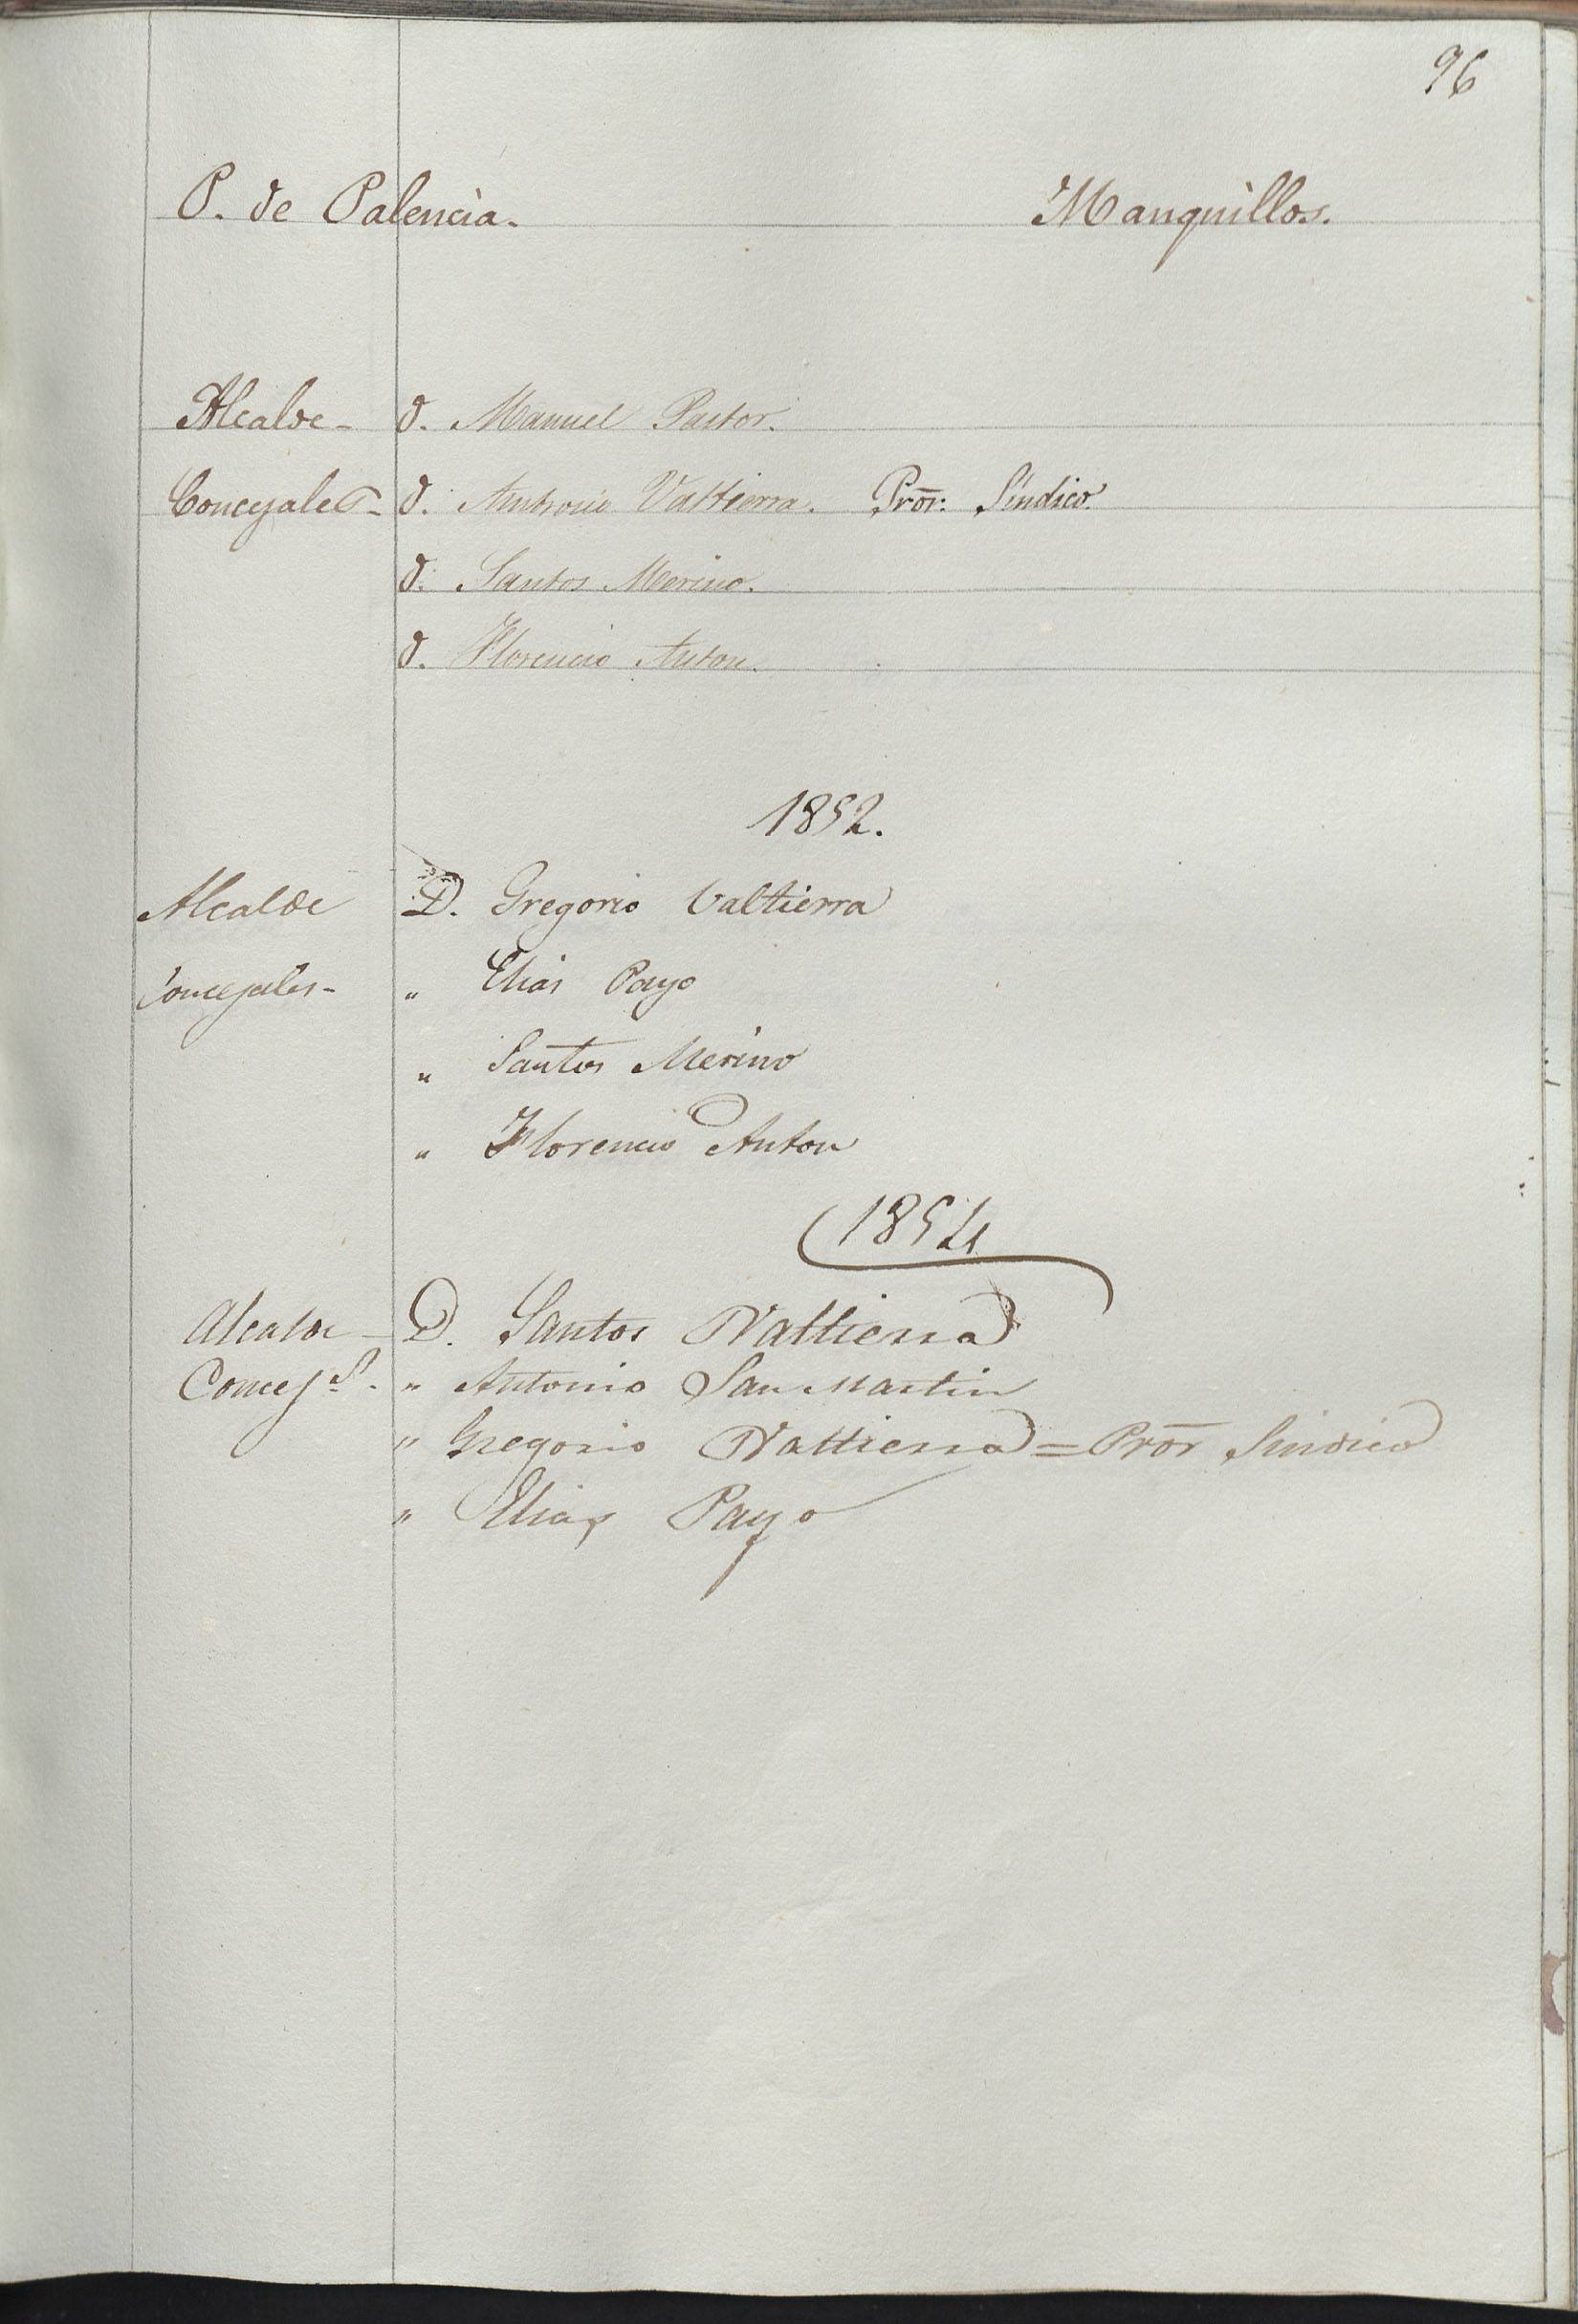 96
P. de Palencia. Manquillos.
Alcalde - d. Manuel Pastor.
Concejales - d. Antonio Valtierra. Pror: Síndico.
d. Santos Merino.
d. Florencio Anton.
1852.
Alcalde D. Gregorio Valtierra
Concejales - " Elias Payo
" Santos Merino
" Florencio Anton
1854
Alcalde - D. Santos Valtierra
Concej.s - " Antonio San Martin
" Gregorio Valtierra = Pror Sindico
" Elias Payo